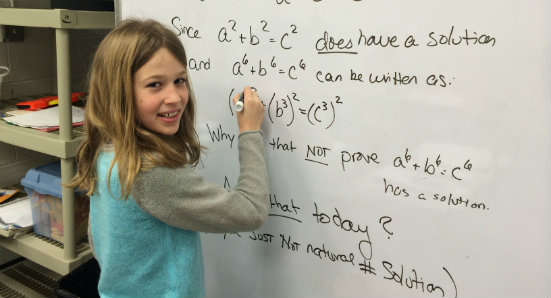 Since a² + b² = c² does have a solution
and a⁶ + b⁶ = c⁶ can be written as:
( ² + (b³)² = (c³)²
Why that NOT prove a⁶ + b⁶ = c⁶
has a solution.
that today?
Just Not natural # Solution)